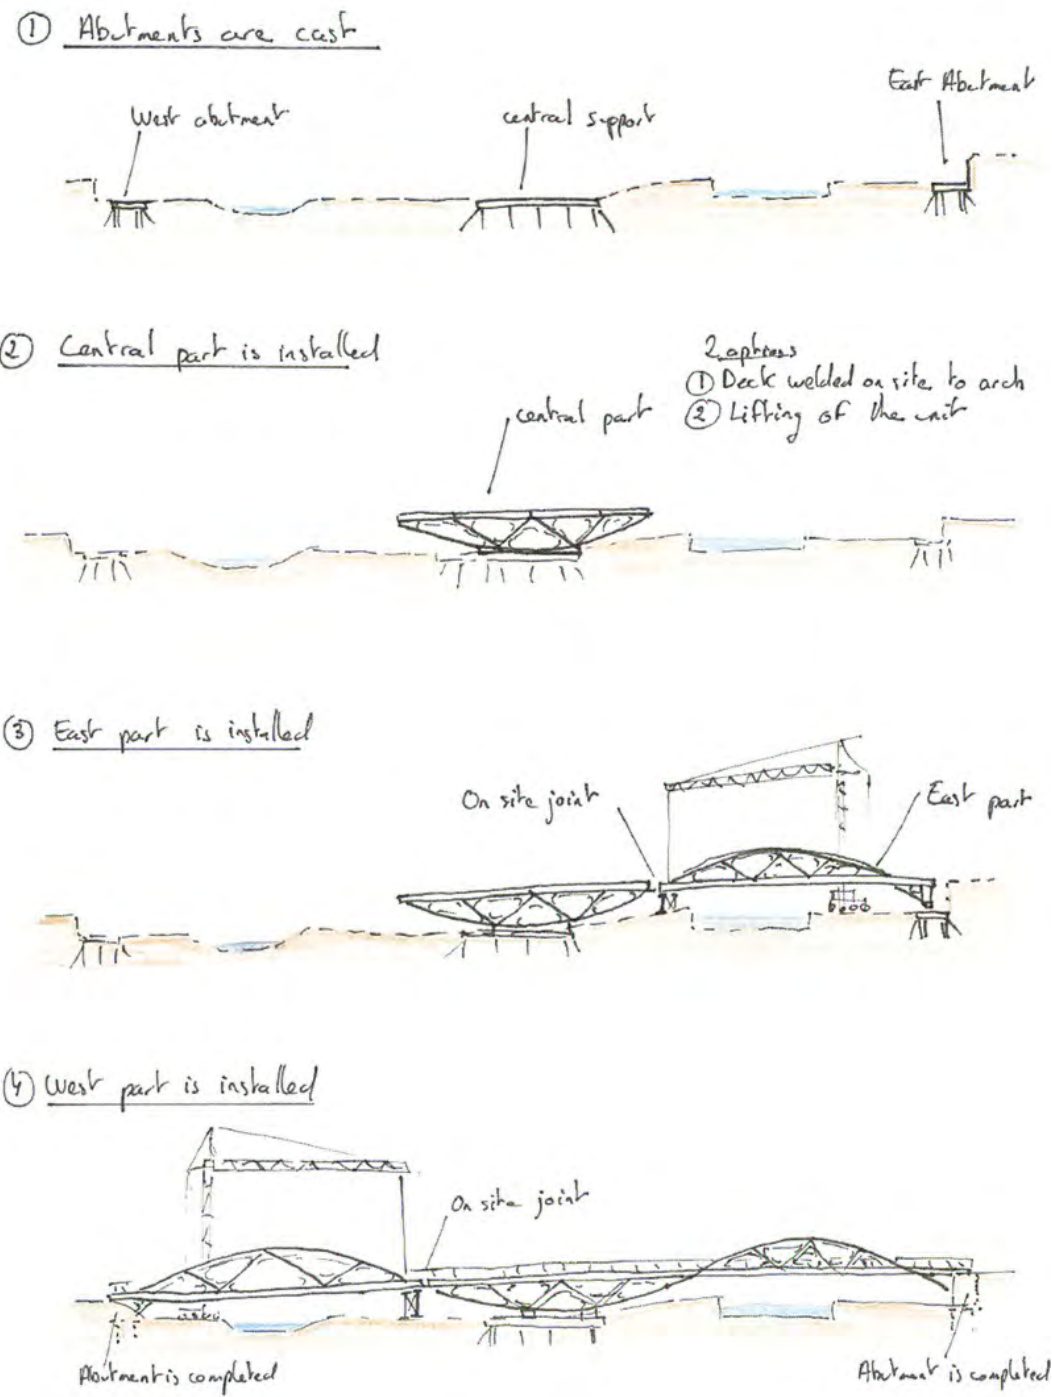 ① Abutments are cast
West abutment
central support
East Abutment
② Central part is installed
2 options
① Deck welded on site to arch
② Lifting of the unit
central part
③ East part is installed
On site joint
East part
④ West part is installed
On site joint
Abutment is completed
Abutment is completed